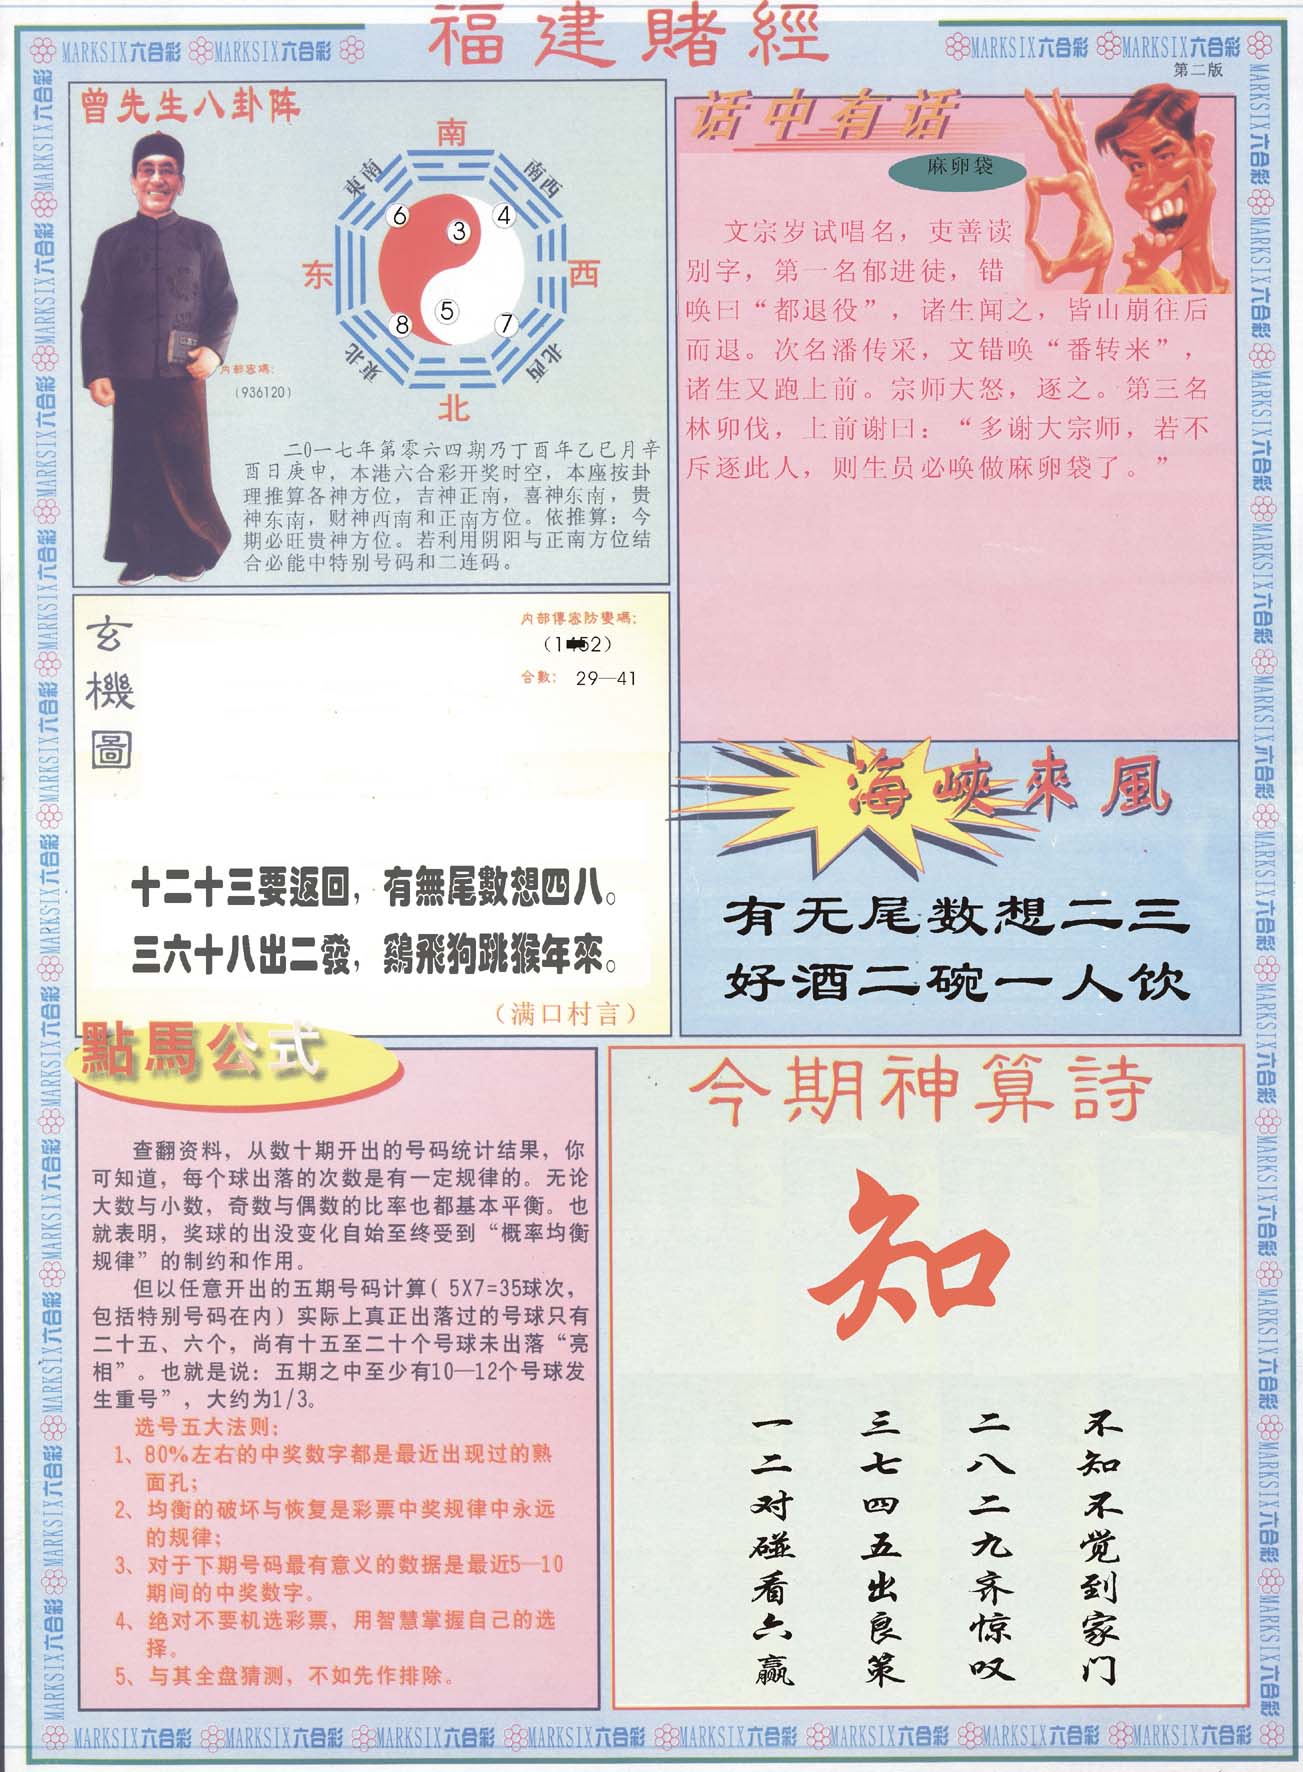 福建賭經
MARKSIX六合彩 MARKSIX六合彩
MARKSIX六合彩 MARKSIX六合彩
第二版
曾先生八卦阵
南
東南
南西
6
3
4
东
西
5
8
7
東北
北西
北
内部密碼：
（936120）
二0一七年第零六四期乃丁酉年乙巳月辛
酉日庚申，本港六合彩开奖时空，本座按卦
理推算各神方位，吉神正南，喜神东南，贵
神东南，财神西南和正南方位。依推算：今
期必旺贵神方位。若利用阴阳与正南方位结
合必能中特别号码和二连码。
话中有话
麻卵袋
文宗岁试唱名，吏善读
别字，第一名郁进徒，错
唤曰“都退役”，诸生闻之，皆山崩往后
而退。次名潘传采，文错唤“番转来”，
诸生又跑上前。宗师大怒，逐之。第三名
林卯伐，上前谢曰：“多谢大宗师，若不
斥逐此人，则生员必唤做麻卵袋了。”
玄機圖
内部傳密防變碼：
合數： 29—41
十二十三要返回，有無尾數想四八。
三六十八出二發，鷄飛狗跳猴年來。
（满口村言）
海峽來風
有无尾数想二三
好酒二碗一人饮
點馬公式
查翻资料，从数十期开出的号码统计结果，你
可知道，每个球出落的次数是有一定规律的。无论
大数与小数，奇数与偶数的比率也都基本平衡。也
就表明，奖球的出没变化自始至终受到“概率均衡
规律”的制约和作用。
但以任意开出的五期号码计算（5X7=35球次，
包括特别号码在内）实际上真正出落过的号球只有
二十五、六个，尚有十五至二十个号球未出落“亮
相”。也就是说：五期之中至少有10—12个号球发
生重号”，大约为1/3。
选号五大法则：
1、80%左右的中奖数字都是最近出现过的熟
面孔；
2、均衡的破坏与恢复是彩票中奖规律中永远
的规律；
3、对于下期号码最有意义的数据是最近5—10
期间的中奖数字。
4、绝对不要机选彩票，用智慧掌握自己的选
择。
5、与其全盘猜测，不如先作排除。
今期神算詩
知
不知不觉到家门
二八二九齐惊叹
三七四五出良策
一二对碰看六赢
MARKSIX六合彩 MARKSIX六合彩 MARKSIX六合彩 MARKSIX六合彩 MARKSIX六合彩 MARKSIX六合彩 MARKSIX六合彩 MARKSIX六合彩